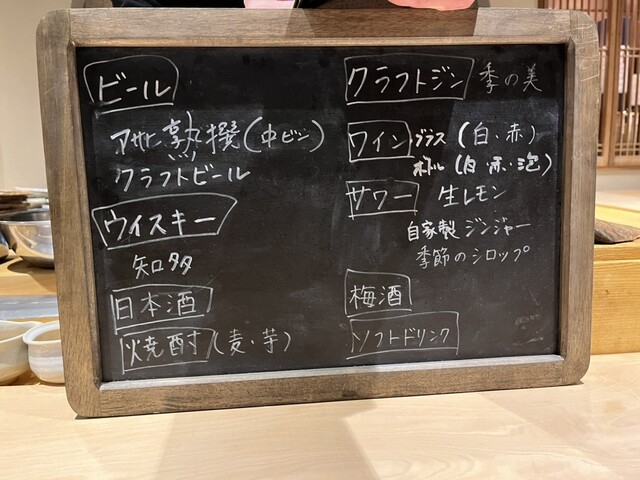 ビール
アサヒ 熟撰(中ビン)
クラフトビール
ウイスキー
知多
日本酒
焼酎(麦・芋)
クラフトジン 季の美
ワイン グラス(白・赤)
ボトル(白・赤・泡)
サワー 生レモン
自家製 ジンジャー
季節のシロップ
梅酒
ソフトドリンク